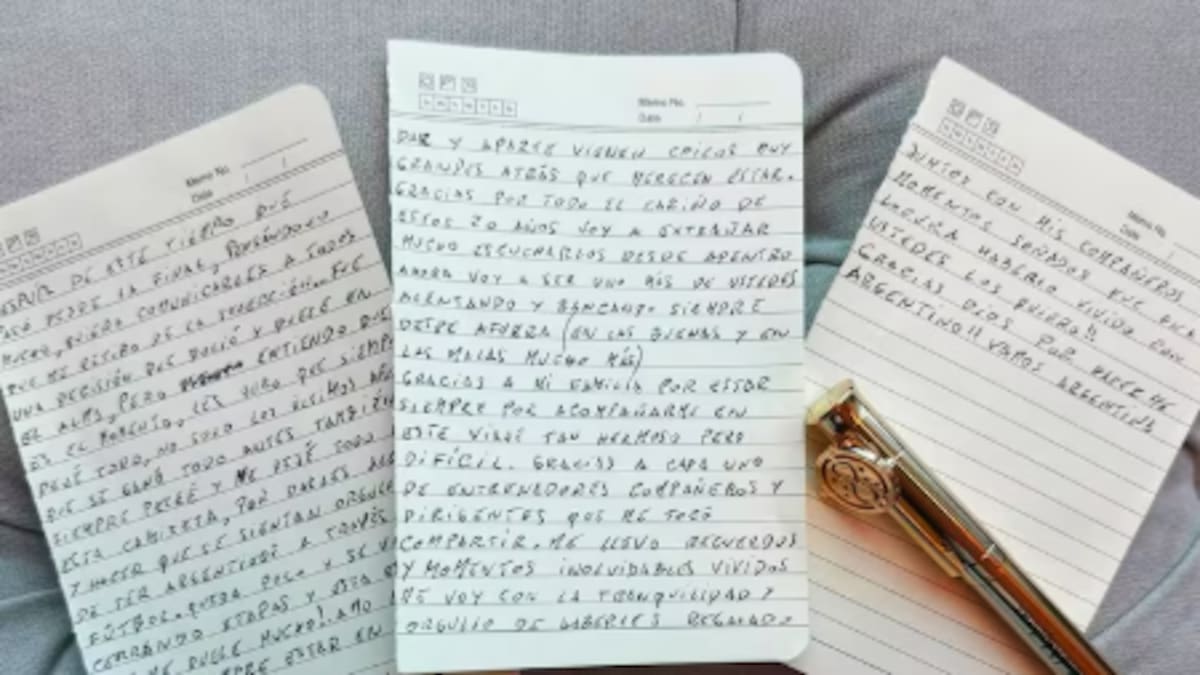 Memo No.
Date / /
DESPUES DE ESTE TIEMPO QUE
DESDE LA FINAL, PENSÁNDOLO
MUCHO, QUIERO COMUNICARLES A TODOS
QUE ME RETIRO DE LA SELECCIÓN. FUE
UNA DECISIÓN QUE DOLIÓ Y DUELE EN
EL ALMA, PERO ENTIENDO QUE
ES EL MOMENTO, LES JURO QUE SIEMPRE
DEJÉ TODO, NO SOLO LOS ÚLTIMOS AÑOS
QUE SE GANÓ TODO ANTES TAMBIÉN
SIEMPRE PELEÉ Y ME DEJÉ TODO
ESTA CAMISETA, POR DARLES
Y HACER QUE SE SIENTAN ORGULLOSOS
DE SER ARGENTINOS A TRAVÉS
FÚTBOL. QUEDA POCO Y SE VA
CERRANDO ETAPAS Y ESTA
ME DUELE MUCHO! AMO
ESTAR EN
Memo No.
Date / /
DAR Y APARTE VIENEN CHICOS MUY
GRANDES ATRÁS QUE MERECEN ESTAR.
GRACIAS POR TODO EL CARIÑO DE
ESTOS 20 AÑOS VOY A EXTRAÑAR
MUCHO ESCUCHARLOS DESDE ADENTRO
AHORA VOY A SER UNO MÁS DE USTEDES
ALENTANDO Y BANCANDO SIEMPRE
DESDE AFUERA (EN LAS BUENAS Y EN
LAS MALAS MUCHO MÁS)
GRACIAS A MI FAMILIA POR ESTAR
SIEMPRE POR ACOMPAÑARME EN
ESTE VIAJE TAN HERMOSO PERO
DIFÍCIL. GRACIAS A CADA UNO
DE ENTRENADORES COMPAÑEROS Y
DIRIGENTES QUE ME TOCÓ
COMPARTIR. ME LLEVO RECUERDOS
Y MOMENTOS INOLVIDABLES VIVIDOS
ME VOY CON LA TRANQUILIDAD Y
ORGULLO DE HABERLES REGALADO
Memo No.
Date /
JUNTOS CON MIS COMPAÑEROS
MOMENTOS SOÑADOS FUE
LOCURA HABERLO VIVIDO CON
USTEDES LOS QUIERO!!
GRACIAS DIOS POR HACERME
ARGENTINO!! VAMOS ARGENTINA